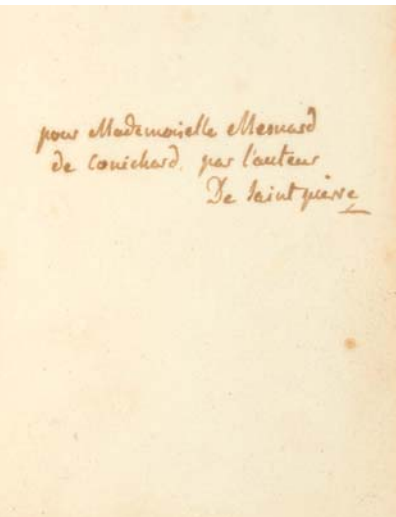 pour Mademoiselle Mesnard
de Conichard. par l'auteur
De Saintpierre